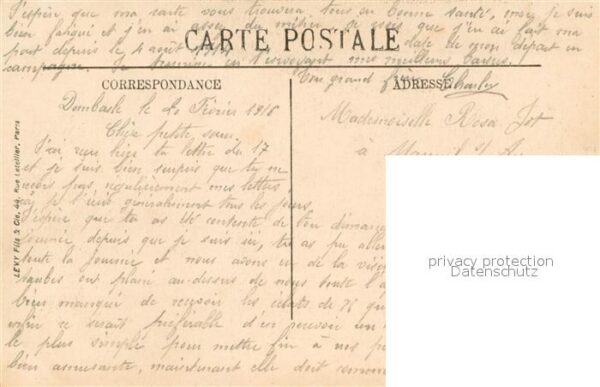 J'espère que ma carte vous trouvera tous en bonne santé, moi je suis
bien fatigué et j'en ai assez du métier
part depuis le 4 août 1914 date de mon départ en
campagne. Je termine en t'envoyant mes meilleurs baisers.
Ton grand frère Charles
CARTE POSTALE
CORRESPONDANCE
ADRESSE
Dombasle le 20 Février 1916
Chère petite sœur
J'ai reçu hier ta lettre du 17
et je suis bien surpris que tu ne
reçois pas régulièrement mes lettres
je t'écris généralement tous les jours.
J'espère que tu as été contente de ton dimanche
journée, depuis que je suis ici,
toute la journée et nous avons eu de la
taubes ont plané au-dessus de nous toute
bien manqué de recevoir les éclats de 75
enfin ce serait préférable d'en recevoir un
le plus simple pour mettre fin à nos
bien amusante, maintenant elle doit
Mademoiselle Rosa
à
LEVY Fils & Cie, 44, Rue Letellier, Paris
privacy protection
Datenschutz